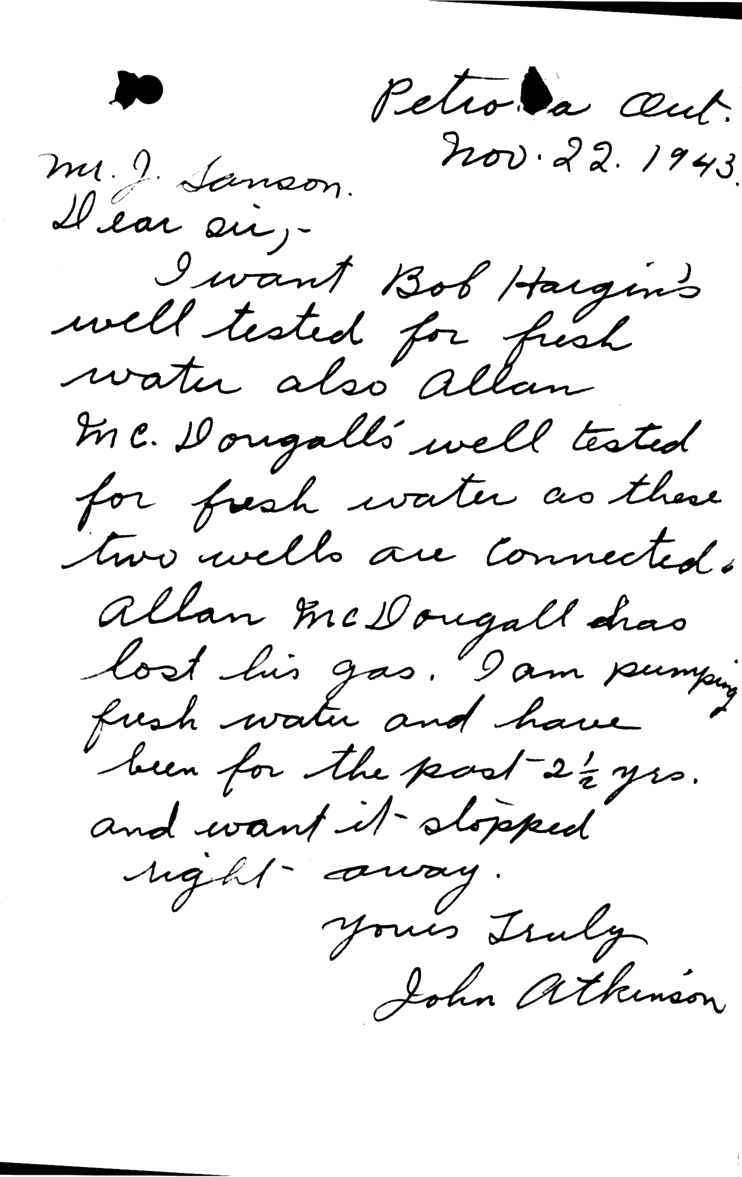 Petrolia Ont.
Nov. 22. 1943.
Mr. J. Sanson.
Dear Sir,-
I want Bob Hargin's
well tested for fresh
water also Allan
Mc. Dougall's well tested
for fresh water as these
two wells are connected.
Allan McDougall has
lost his gas. I am pumping
fresh water and have
been for the past 2½ yrs.
and want it stopped
right away.
Yours Truly
John Atkinson